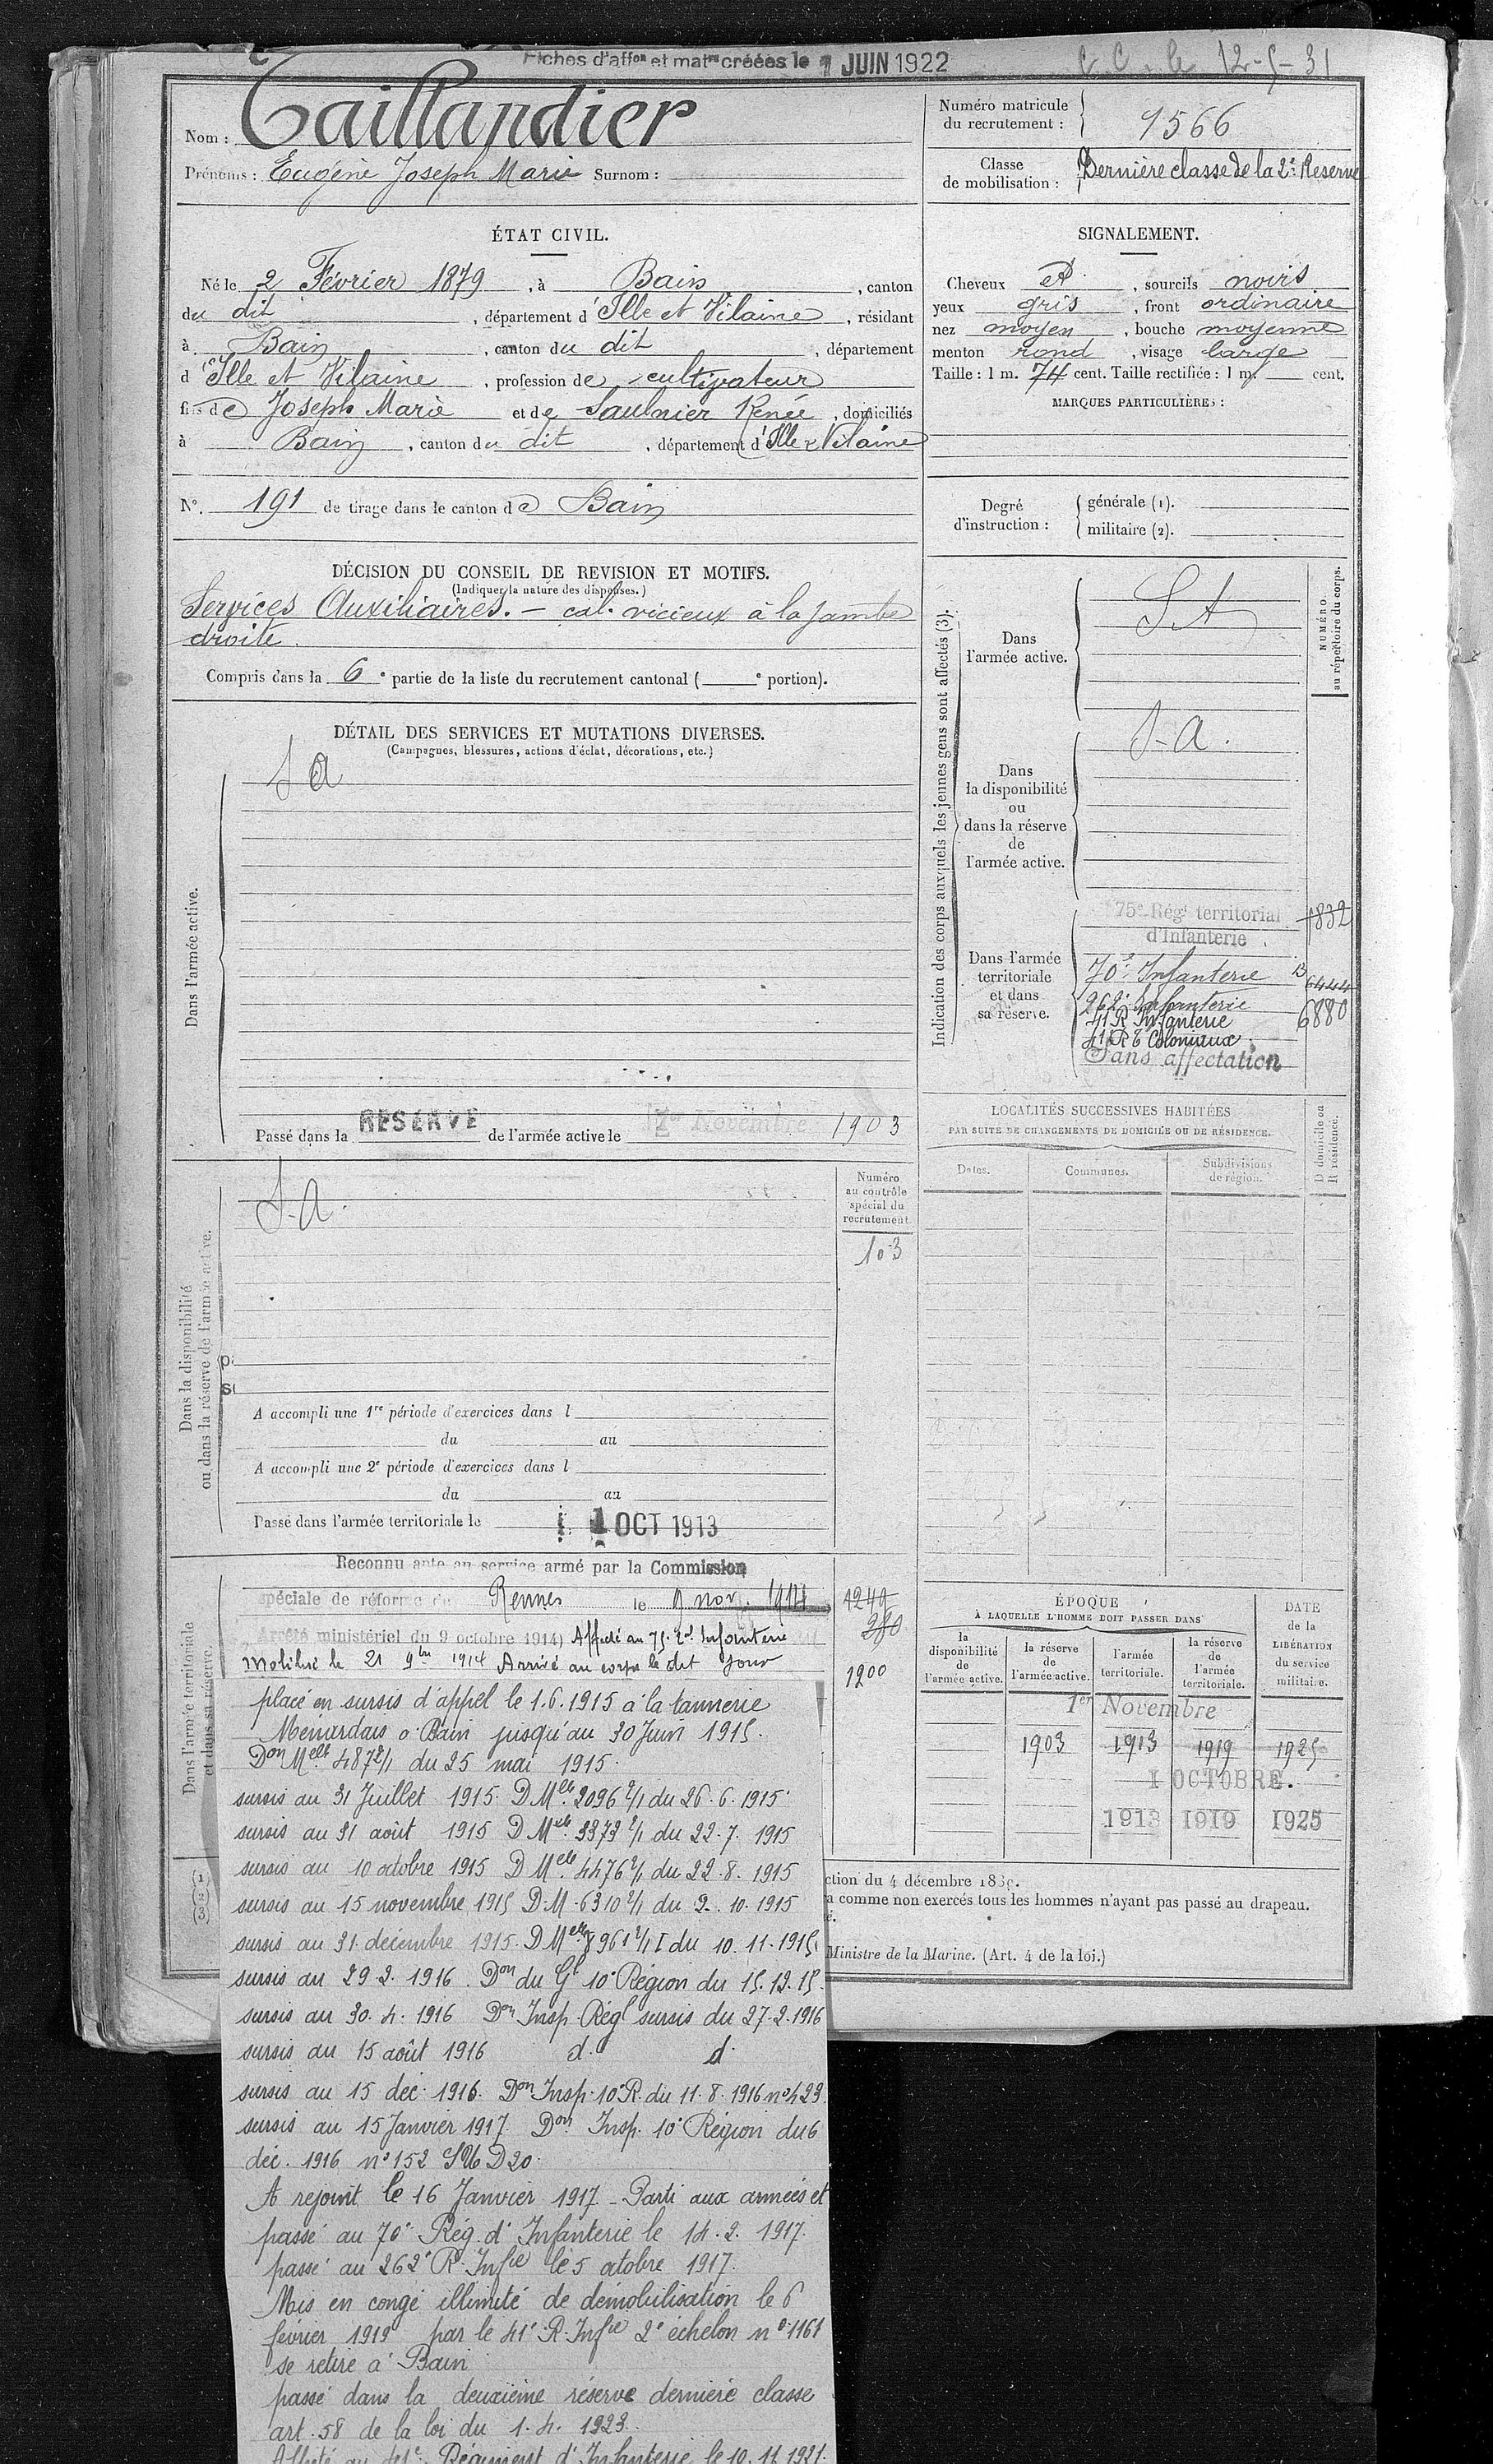 Fiches d'affon et matre créées le 1 JUIN 1922
C. C. le 12-5-31
Nom : Taillandier
Prénoms : Eugène Joseph Marie Surnom :
Numéro matricule du recrutement : 1566
Classe de mobilisation : Dernière classe de la 2e Reserve
ÉTAT CIVIL.
Né le 2 Février 1879, à Bain, canton
du dit, département d'Ille et Vilaine, résidant
à Bain, canton du dit, département
d'Ille et Vilaine, profession de cultivateur
fils de Joseph Marie et de Saulnier Renée, domiciliés
à Bain, canton du dit, département d'Ille & Vilaine
No. 191 de tirage dans le canton de Bain
SIGNALEMENT.
Cheveux et, sourcils noirs
yeux gris, front ordinaire
nez moyen, bouche moyenne
menton rond, visage large
Taille : 1 m. 74 cent. Taille rectifiée : 1 m. cent.
MARQUES PARTICULIÈRES :
Degré d'instruction : { générale (1).
militaire (2).
DÉCISION DU CONSEIL DE REVISION ET MOTIFS.
(Indiquer la nature des dispenses.)
Services Auxiliaires. — cal. vicieux à la jambe
droite.
Compris dans la 6e partie de la liste du recrutement cantonal ( e portion).
DÉTAIL DES SERVICES ET MUTATIONS DIVERSES.
(Campagnes, blessures, actions d'éclat, décorations, etc.)
Dans l'armée active.
S A
Passé dans la RESERVE de l'armée active le 1er Novembre 1903
Indication des corps auxquels les jeunes gens sont affectés (3).
NUMÉRO au répertoire du corps.
Dans l'armée active.
S A
Dans la disponibilité ou dans la réserve de l'armée active.
S-A.
Dans l'armée territoriale et dans sa réserve.
75e Régt territorial 1832
d'Infanterie
70e Infanterie 6444
262e Infanterie 6880
41 R Infanterie
41 R T Coloniaux
Sans affectation
LOCALITÉS SUCCESSIVES HABITÉES
PAR SUITE DE CHANGEMENTS DE DOMICILE OU DE RÉSIDENCE.
Dates. Communes. Subdivisions de région. D domicile ou R résidence.
Dans la disponibilité ou dans la réserve de l'armée active.
S-A.
Numéro au contrôle spécial du recrutement
103
A accompli une 1re période d'exercices dans l
du au
A accompli une 2e période d'exercices dans l
du au
Passé dans l'armée territoriale le 1 OCT 1913
Dans l'armée territoriale et dans sa réserve.
Reconnu apte au service armé par la Commission
spéciale de réforme de Rennes le 9 nov. 1914
(Arrêté ministériel du 9 octobre 1914) Affecté au 75. Rd Infanterie
Mobilisé le 21 9bre 1914 Arrivé au corps le dit jour
1249
280
1200
placé en sursis d'appel le 1.6.1915 à la tannerie
Menardais à Bain jusqu'au 30 Juin 1915.
Don Melle 487 2/1 du 25 mai 1915.
sursis au 31 Juillet 1915. D Melle 2096 2/1 du 26.6.1915.
sursis au 31 août 1915 D Melle 3373 2/1 du 22.7.1915
sursis au 10 octobre 1915 D Melle 4476 2/1 du 22.8.1915
sursis au 15 novembre 1915 D.M. 6310 2/1 du 2.10.1915
sursis au 31 décembre 1915. D Melle 8961 2/1 I du 10.11.1915.
sursis au 29.2.1916. Don du Gl 10e Région du 15.12.15.
sursis au 30.4.1916 Don Insp. Régl sursis du 27.2.1916
sursis au 15 août 1916 d. d.
sursis au 15 déc. 1916. Don Insp. 10e R. du 11.8.1916 no 423
sursis au 15 Janvier 1917. Don Insp. 10e Région du 6
déc. 1916 no 152 D20.
A rejoint le 16 Janvier 1917. - Parti aux armées et
passé au 70e Rég. d'Infanterie le 14.2.1917.
passé au 262e R. Infie le 5 octobre 1917.
Mis en congé illimité de démobilisation le 6
février 1919 par le 41e R. Infie 2e échelon no 1161
se retire à Bain
passé dans la deuxième réserve dernière classe
art. 58 de la loi du 1.4.1923.
Affecté au 41e Régiment d'Infanterie le 10.11.1921.
ÉPOQUE
À LAQUELLE L'HOMME DOIT PASSER DANS
la disponibilité de l'armée active. la réserve de l'armée active. l'armée territoriale. la réserve de l'armée territoriale. DATE de la LIBÉRATION du service militaire.
1er Novembre
1903 1913 1919 1925
1 OCTOBRE.
1913 1919 1925
(1)
(2)
(3)
ction du 4 décembre 1889.
a comme non exercés tous les hommes n'ayant pas passé au drapeau.
é.
Ministre de la Marine. (Art. 4 de la loi.)